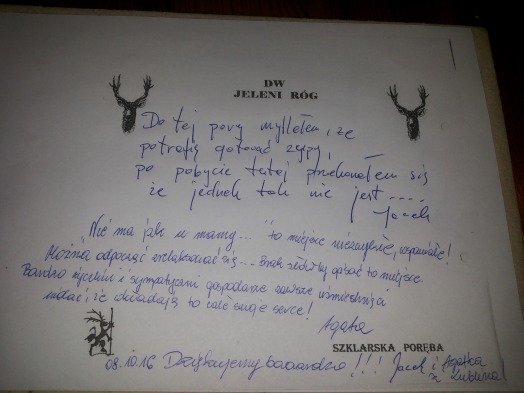 DW
JELENI RÓG
Do tej pory myślałem, że
potrafię gotować zupy,
po pobycie tutaj przekonałem się
że jednak tak nie jest ....
Jacek
"Nie ma jak u mamy..." to miejsce niezwykłe, wspaniałe!
Można odpocząć zrelaksować się... Brak słów by opisać to miejsce.
Bardzo życzliwi i sympatyczni gospodarze zawsze uśmiechnięci
widać, że wkładają to całe swoje serce!
Agata
SZKLARSKA PORĘBA
08.10.16 Dziękujemy baaardzo!!! Jacek i Agatka
z Lublina!